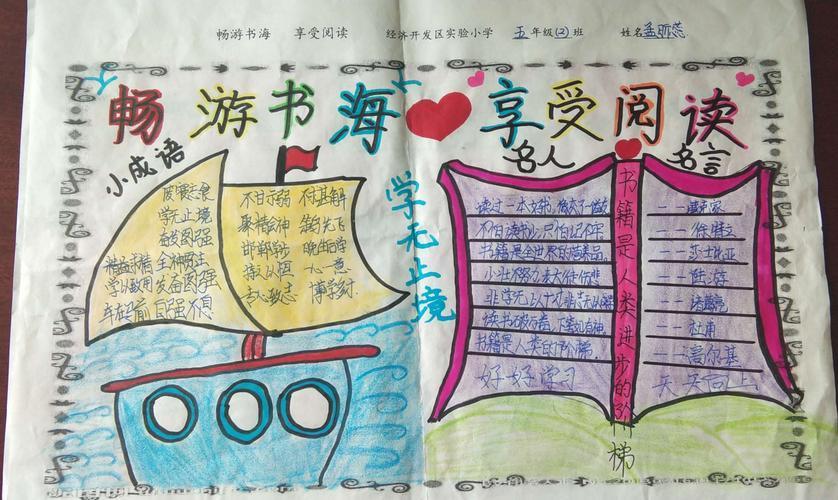 畅游书海 享受阅读 经济开发区实验小学 五年级(2)班 姓名孟
畅游书海 享受阅读
小成语
废寝忘食
学无止境
奋发图强
精益求精 全神贯注
学以致用 发奋图强
车在马前 自强不息
不甘示弱 不求甚解
聚精会神 笨鸟先飞
邯郸学步
一心一意
专心致志
学无止境
名人 名言
读过一本好书，
不怕读书少，只怕记不牢 ——徐特立
书籍是全世界的营养品 ——莎士比亚
少壮不努力老大徒伤悲 ——
非学无以广才，非志无以 ——诸葛亮
读书破万卷，下笔如有神 ——杜甫
书籍是人类的阶梯 ——高尔基
好好学习 天天向上
书籍是人类进步的阶梯